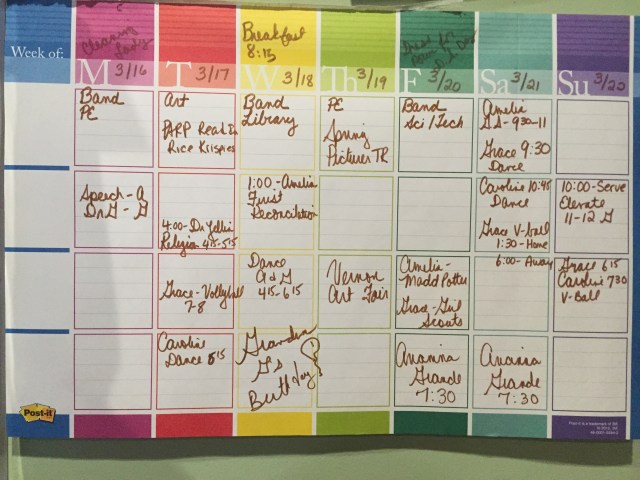 Week of:
Cleaning
Lady
M 3/16
T 3/17
Breakfast
8:15
W 3/18
Th 3/19
Dress for
F 3/20
Sa 3/21
Su 3/20
Band
PE
Art
PARP Read In
Rice Krispies
Band
Library
PE
Spring
Pictures TR
Band
Sci/Tech
Amelia
GS-930-11
Grace 9:30
Dance
Speech-A
Dr G - G
4:00-Dr.
Religion 415-515
1:00-Amelia
First
Reconciliation
Caroline 10:45
Dance
Grace V-ball
1:30-Home
10:00-Serve
Elevate
11-12 G
Grace-Volleyball
7-8
Dance
A & G
415-615
Vernon
Art Fair
Amelia-
Madd Potter
Grace-Girl
Scouts
6:00-Away
Grace 615
Caroline 730
V-Ball
Caroline
Dance 815
Grandma
G's
Birthday!
Arianna
Grande
7:30
Arianna
Grande
7:30
Post-it